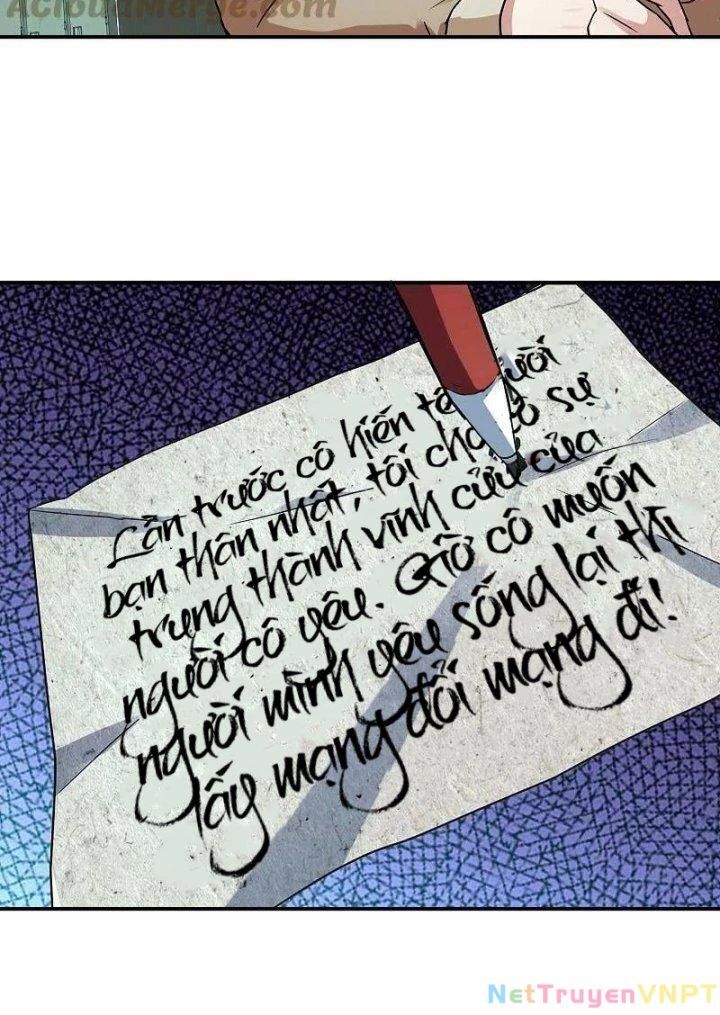 AcloudMerge.com
Lần trước cô hiến tế người
bạn thân nhất, tôi cho cô sự
trung thành vĩnh cửu của
người cô yêu. Giờ cô muốn
người mình yêu sống lại thì
lấy mạng đổi mạng đi!
NetTruyenVNPT